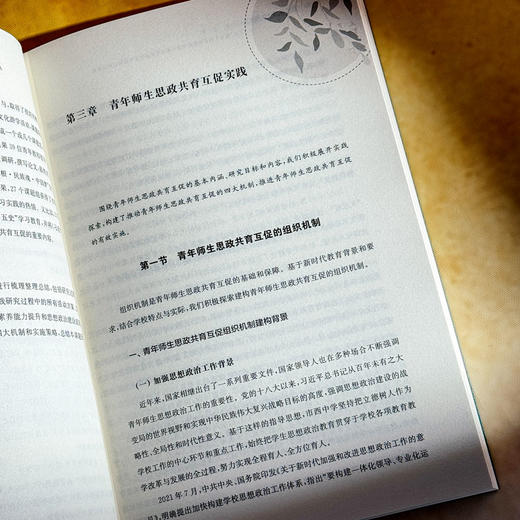 与，取得了
文化游学活动，
成一个或几个课题
果 39 位青年教师
调研，撰写论文，
根·民族魂·中国
27 个课题组
习实践的热情，文
五史”学习教育，并
共育互促的重要内容。
进行梳理整理总结，
践研究过程中的所有活动
素养能力提升和思想政治建设
四大机制和实施策略，总结本课
第三章　青年师生思政共育互促实践
围绕青年师生思政共育互促的基本内涵、研究目标和内容，我们积极展开实践
探索，构建了推动青年师生思政共育互促的四大机制，推进青年师生思政共育互促
的有效实施。
第一节　青年师生思政共育互促的组织机制
组织机制是青年师生思政共育互促的基础和保障。基于新时代教育背景和要
求，结合学校特点与实际，我们积极探索建构青年师生思政共育互促的组织机制。
一、青年师生思政共育互促组织机制建构背景
（一）加强思想政治工作背景
近年来，国家相继出台了一系列重要文件，国家领导人也在多种场合不断强调
青年师生思想政治工作的重要性。党的十八大以来，习近平总书记从百年未有之大
变局的世界视野和实现中华民族伟大复兴战略目标的高度，强调思想政治建设的战
略性、全局性和时代性意义。基于这样的指导思想，市西中学坚持把立德树人作为
学校工作的中心环节和重点工作，始终把学生思想政治教育贯穿于学校各项教育教
学改革与发展的全过程，努力实现全程育人、全方位育人。
2021 年 7 月，中共中央、国务院印发《关于新时代加强和改进思想政治工作的意
见》，明确提出加快构建学校思想政治工作体系，指出“要构建一体化领导、专业化运